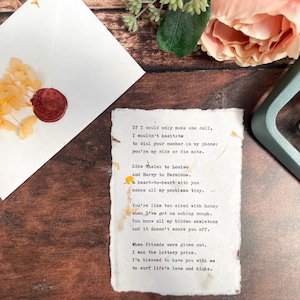 If I would only make one call,
I wouldn't hesitate
to dial your number in my phone:
you're my ride or die mate.
Like Thelma to Louise
and Harry to Hermione,
a heart-to-heart with you
makes all my problems tiny.
You're like tea mixed with honey
when I've got an aching cough.
You know all my hidden skeletons
and it doesn't scare you off.
When friends were given out,
I won the lottery prize.
I'm blessed to have you with me
to surf life's lows and highs.